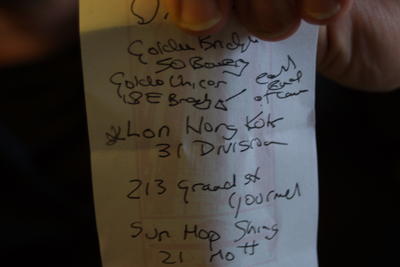 Golden Bridge
50 Bowery
Golde Unicor
18 E Broadwy
east
End
of Can
Hon Wong Kok
31 Division
213 grand st
gourmet
Sun Hop Shing
21 Mott